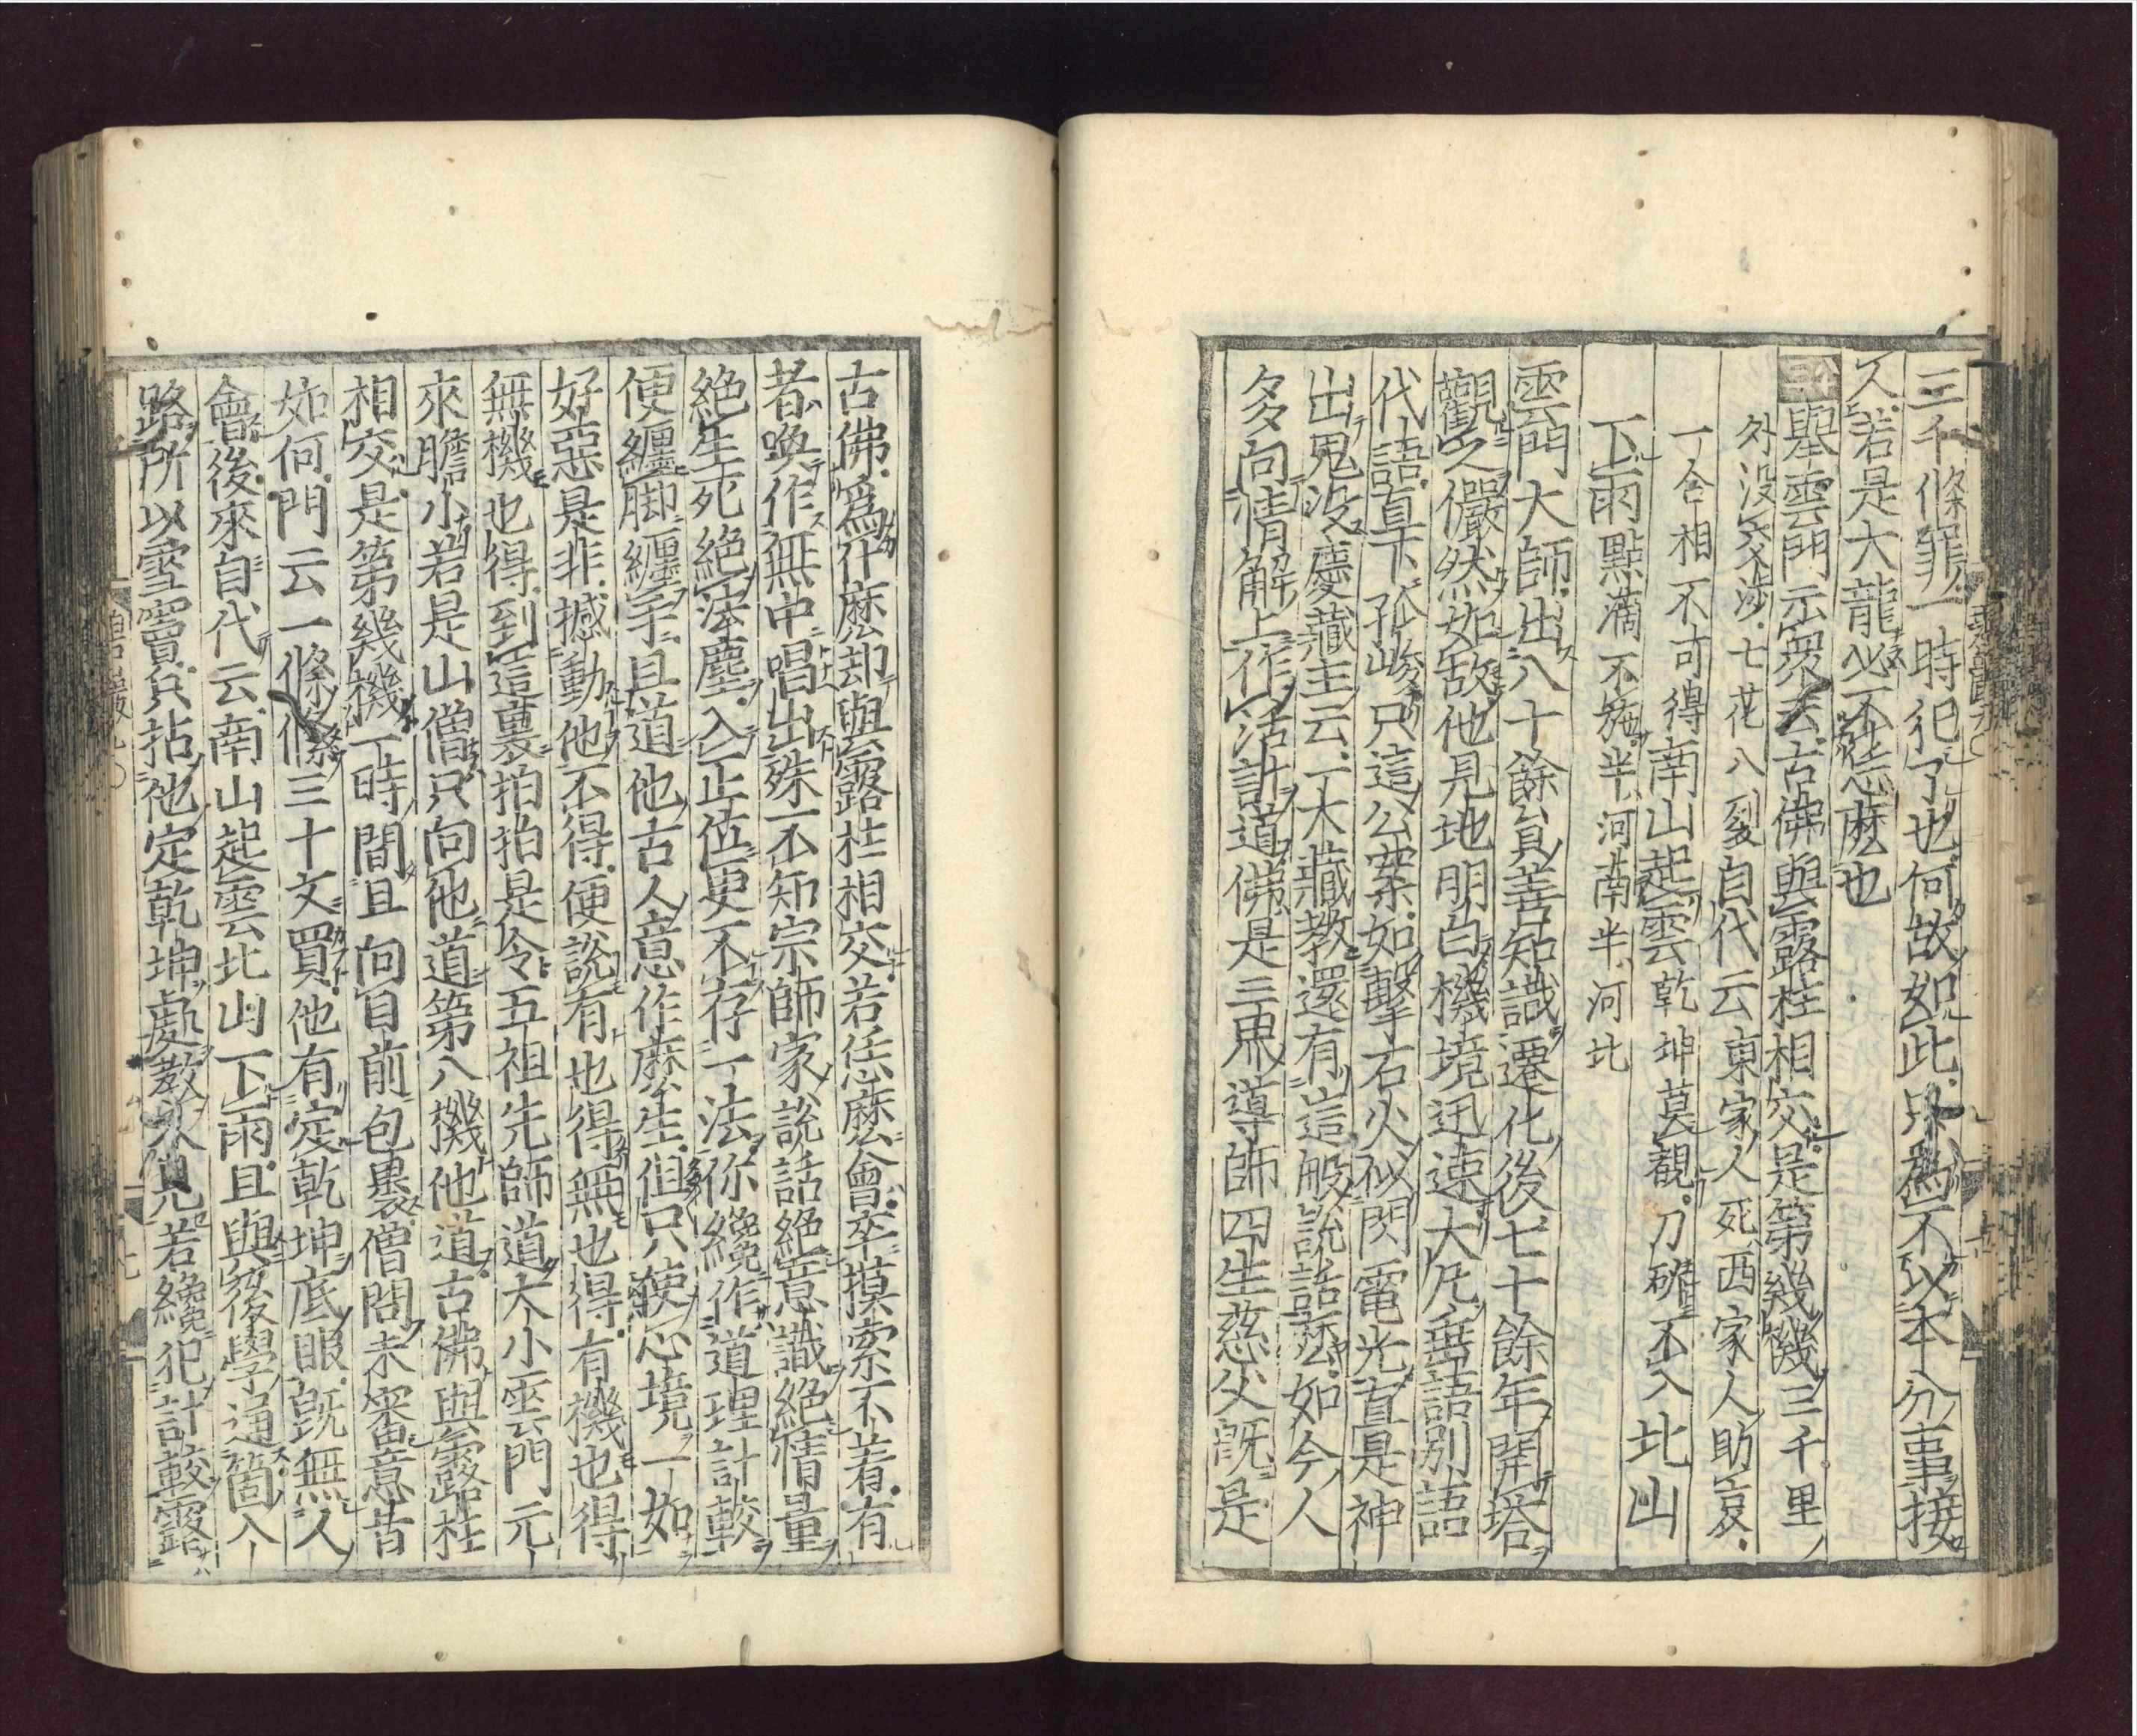 三千條罪一時犯了也何故如此只爲不以本分事接
人若是大龍必不恁麽也
舉雲門示衆云古佛與露柱相交是第幾機三千里
外没交渉七花八裂自代云東家人死西家人助哀
一合相不可得南山起雲乾坤莫覩刀斫不入北山
下雨點滴不施半河南半河北
雲門大師出八十餘員善知識遷化後七十餘年開塔
觀之儼然如故他見地明白機境迅速大凡垂語別語
代語直下孤峻只這公案如擊石火似閃電光直是神
出鬼没慶藏主云一大藏教還有這般說話麽如今人
多向情解上作活計道佛是三界導師四生慈父旣是
古佛爲什麽却與露柱相交若恁麽會卒摸索不着有
者喚作無中唱出殊不知宗師家說話絶意識絶情量
絶生死絶法塵入正位更不存一法你纔作道理計較
便纏脚纏手且道他古人意作麽生但只使心境一如
好惡是非撼動他不得便說有也得無也得有機也得
無機也得到這裏拍拍是令五祖先師道大小雲門元
來膽小若是山僧只向他道第八機他道古佛與露柱
相交是第幾機一時間且向目前包裹僧問未審意旨
如何門云一條絛三十文買他有定乾坤底眼旣無人
會後來自代云南山起雲北山下雨且與後學通箇入
路所以雪竇只拈他定乾坤處教人見若纔犯計較露